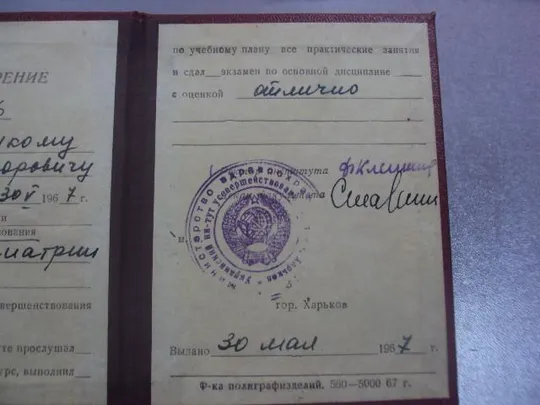 РЕНИЕ
кому
оровичу
30 V 1967 г.
ования
иатрии
вершенствования
те прослушал
урс, выполнил
по учебному плану все практические занятия
и сдал экзамен по основной дисциплине
с оценкой отлично
института
Министерство здравоохра
Украинский ин-тут усовершенствован
Харьков
м.
гор. Харьков
Выдано 30 мая 1967 г.
Ф-ка полиграфизделий. 560—5000 67 г.